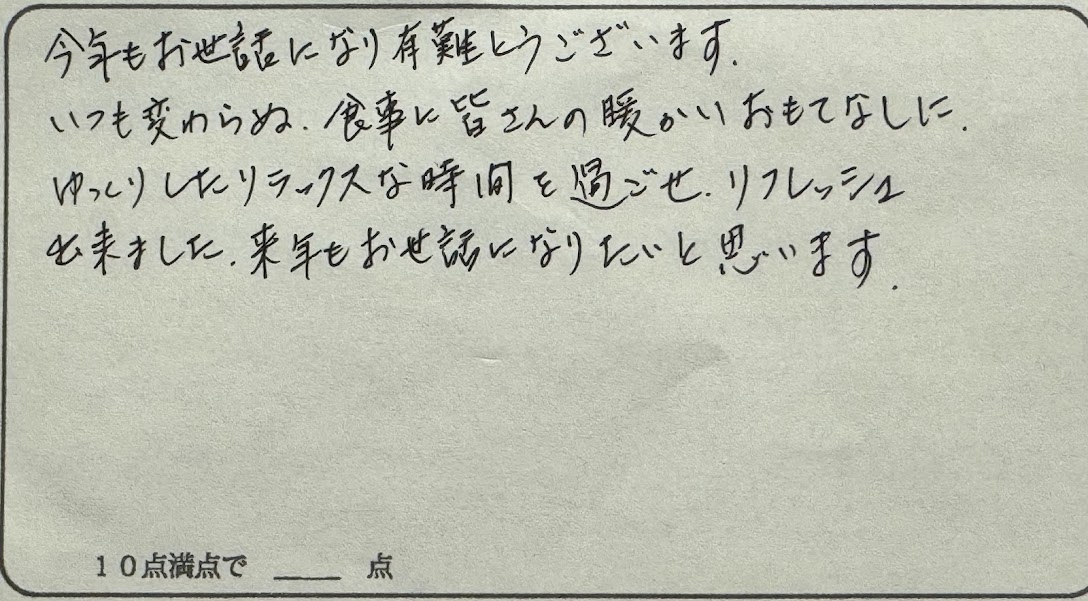 今年もお世話になり有難とうございます.
いつも変わらぬ.食事に皆さんの暖かいおもてなしに.
ゆっくりしたリラックスな時間を過ごせ.リフレッシュ
出来ました.来年もお世話になりたいと思います.
10点満点で ____ 点